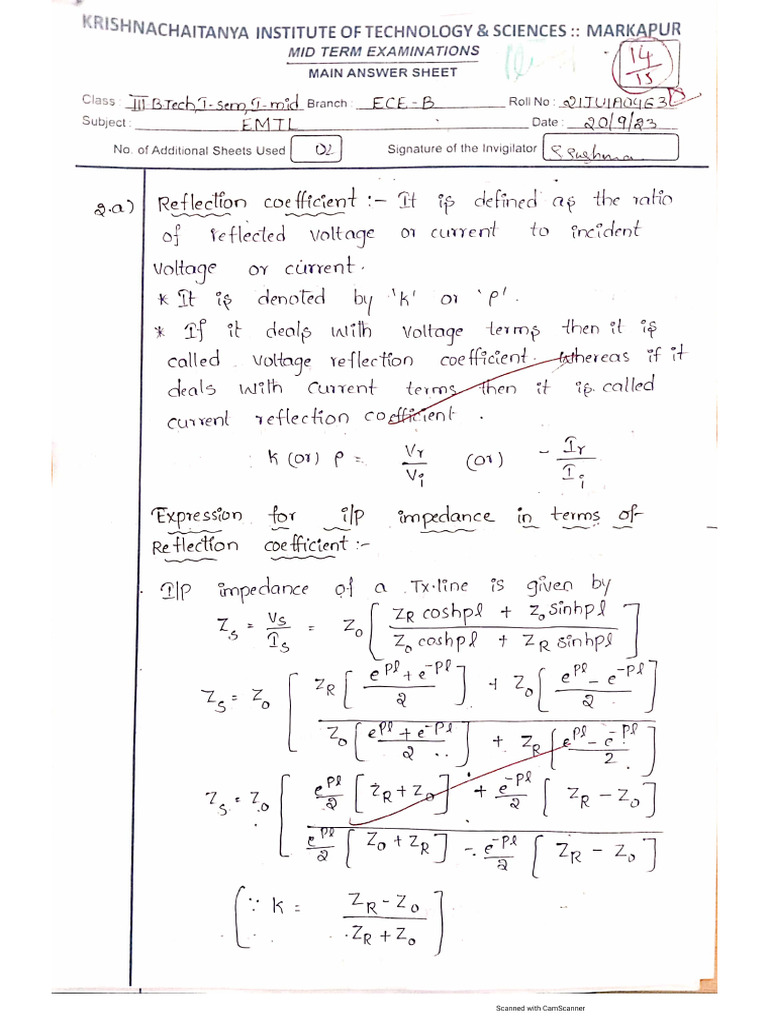 KRISHNACHAITANYA INSTITUTE OF TECHNOLOGY & SCIENCES :: MARKAPUR
MID TERM EXAMINATIONS
MAIN ANSWER SHEET
14/15
Class : III B.Tech, I-sem, I-mid Branch : ECE-B Roll No : 21JU1A0463
Subject : EMTL Date : 20/9/23
No. of Additional Sheets Used 02 Signature of the Invigilator
2.a) Reflection coefficient :- It is defined as the ratio
of reflected voltage or current to incident
voltage or current.
* It is denoted by 'k' or 'ρ'.
* If it deals with voltage terms then it is
called voltage reflection coefficient. Whereas if it
deals with current terms then it is called
current reflection coefficient.
k (or) ρ = Vr/Vi (or) - Ir/Ii
Expression for i/p impedance in terms of
Reflection coefficient :-
I/p impedance of a Tx.line is given by
Zs = Vs/Is = Z0 [ (ZR coshpl + Z0 sinhpl) / (Z0 coshpl + ZR sinhpl) ]
Zs = Z0 [ ( ZR [ (e^pl + e^-pl)/2 ] + Z0 [ (e^pl - e^-pl)/2 ] ) / ( Z0 [ (e^pl + e^-pl)/2 ] + ZR [ (e^pl - e^-pl)/2 ] ) ]
Zs = Z0 [ ( e^pl/2 [ ZR + Z0 ] + e^-pl/2 [ ZR - Z0 ] ) / ( e^pl/2 [ Z0 + ZR ] - e^-pl/2 [ ZR - Z0 ] ) ]
[ ∵ k = (ZR - Z0) / (ZR + Z0) ]
Scanned with CamScanner